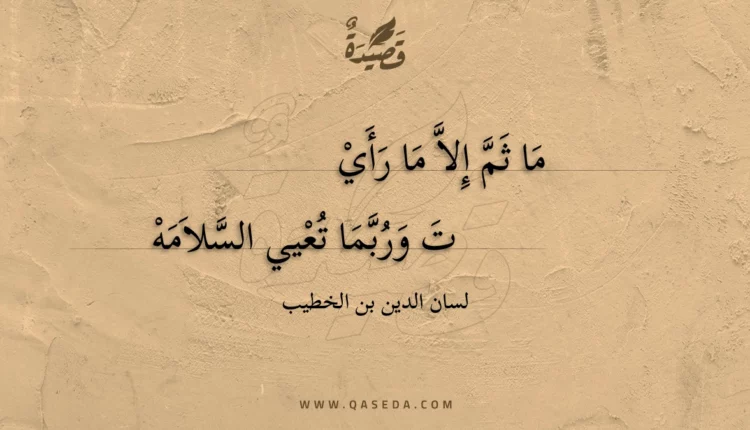 قَصِيدَةٌ
مَا ثَمَّ إِلاَّ مَا رَأَيْ
تَ وَرُبَّمَا تُعْيي السَّلاَمَهْ
لسان الدين بن الخطيب
WWW.QASEDA.COM